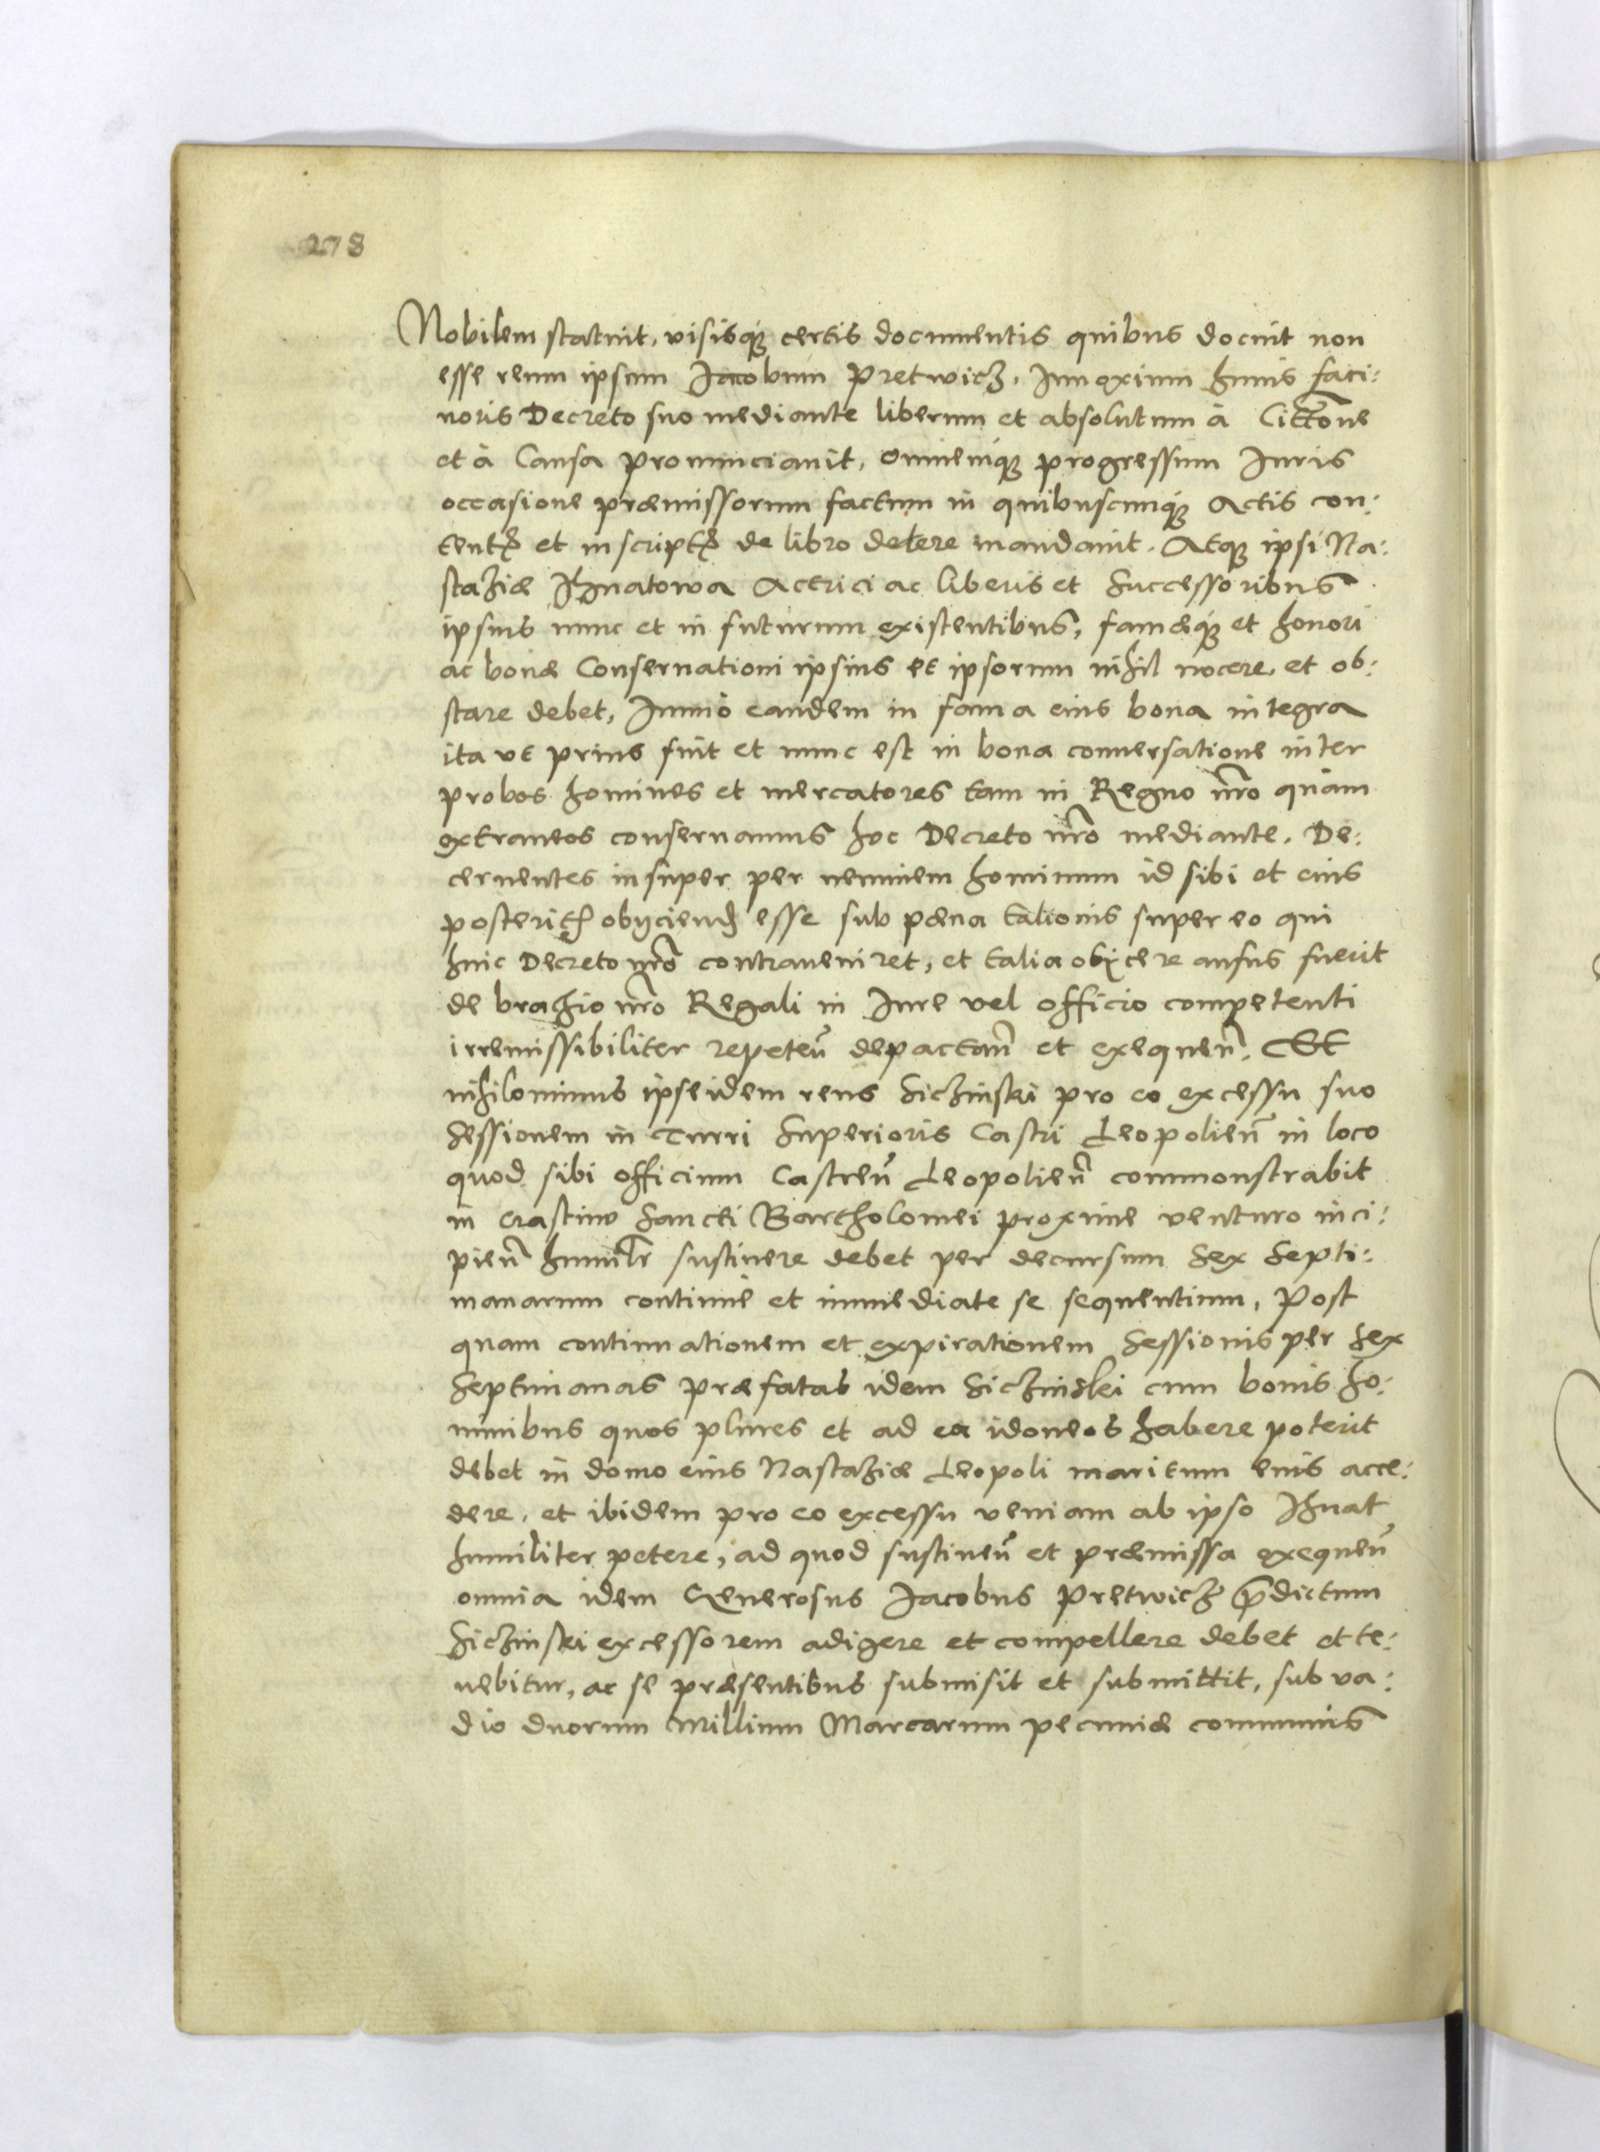 278
Nobilem statuit, visisq́ꝫ certis documentis quibus docuit non
esse reum ipsum Jacobum Pretwicz, Innoxium huius faci:
noris Decreto suo mediante liberum et absolutum à Citt̃one
et à Causa pronunciauit, omnemq́ꝫ progressum Iuris
occasione præmissorum factum in quibuscunq́ꝫ Actis con:
tent̃ et inscript̃ de libro delere mandauit. Atqꝫ ipsi Na:
staziæ Ihnatowa Actrici ac liberis et Successoribus
ipsius nunc et in futurum existentibus, famæq́ꝫ et honori
ac bonæ Conseruationi ipsius et ipsorum nihil nocere et ob:
stare debet, Immò eandem in fama eius bona integra
ita vt prius fuit et nunc est in bona conuersatione inter
probos homines et mercatores tam in Regno nr̃o quàm
extraneos conseruamus hoc Decreto nr̃o mediante. De:
cernentes insuper per neminem hominum id sibi et eius
posterit̃ obijciend̃ esse sub pæna talionis super eo qui
huic Decreto nr̃o contraueniret, et talia obijcere ausus fuerit
de brachio nr̃o Regali in Iure vel officio competenti
irremissibiliter repeteñ depactañ et exequeñ. Et
nihilominus ipse idem reus Siczinski pro eo excessu suo
Sessionem in Turri Superioris Castri Leopolieñ in loco
quod sibi officium Castreñ Leopolieñ commonstrabit
in crastino Sancti Bartholomei proxime venturo inci:
pieñ humil̃r sustinere debet per decursum Sex Septi:
manarum continuè et immediate se sequentium, Post
quam continuationem et expirationem Sessionis per Sex
Septimanas præfatas idem Siczinski cum bonis ho:
minibus quos plures et ad ea idoneos habere poterit
debet in domo eius Nastaziæ Leopoli maritum eius acce:
dere, et ibidem pro eo excessu veniam ab ipso Ihnat
humiliter petere, ad quod sustineñ et præmissa exequeñ
omnia idem Generosus Jacobus Pretwicz p̃dictum
Siczinski excessorem adigere et compellere debet et te:
nebitur, ac se præsentibus submisit et submittit, sub va:
dio duorum Millium Marcarum pecuniæ communis